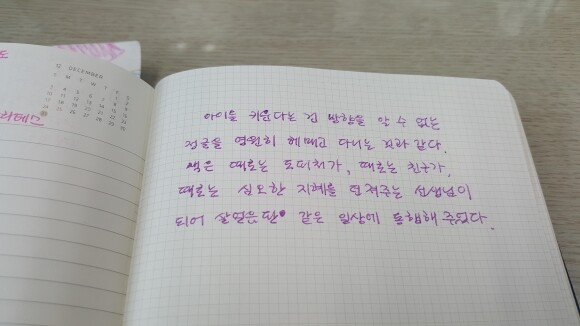 12 DECEMBER
아이를 키운다는 건 방향을 알 수 없는
정글을 영원히 헤매고 다니는 것과 같다.
책은 때로는 도피처가, 때로는 친구가,
때로는 심오한 지혜를 던져주는 선생님이
되어 살얼음판 같은 일상에 동행해 주었다.